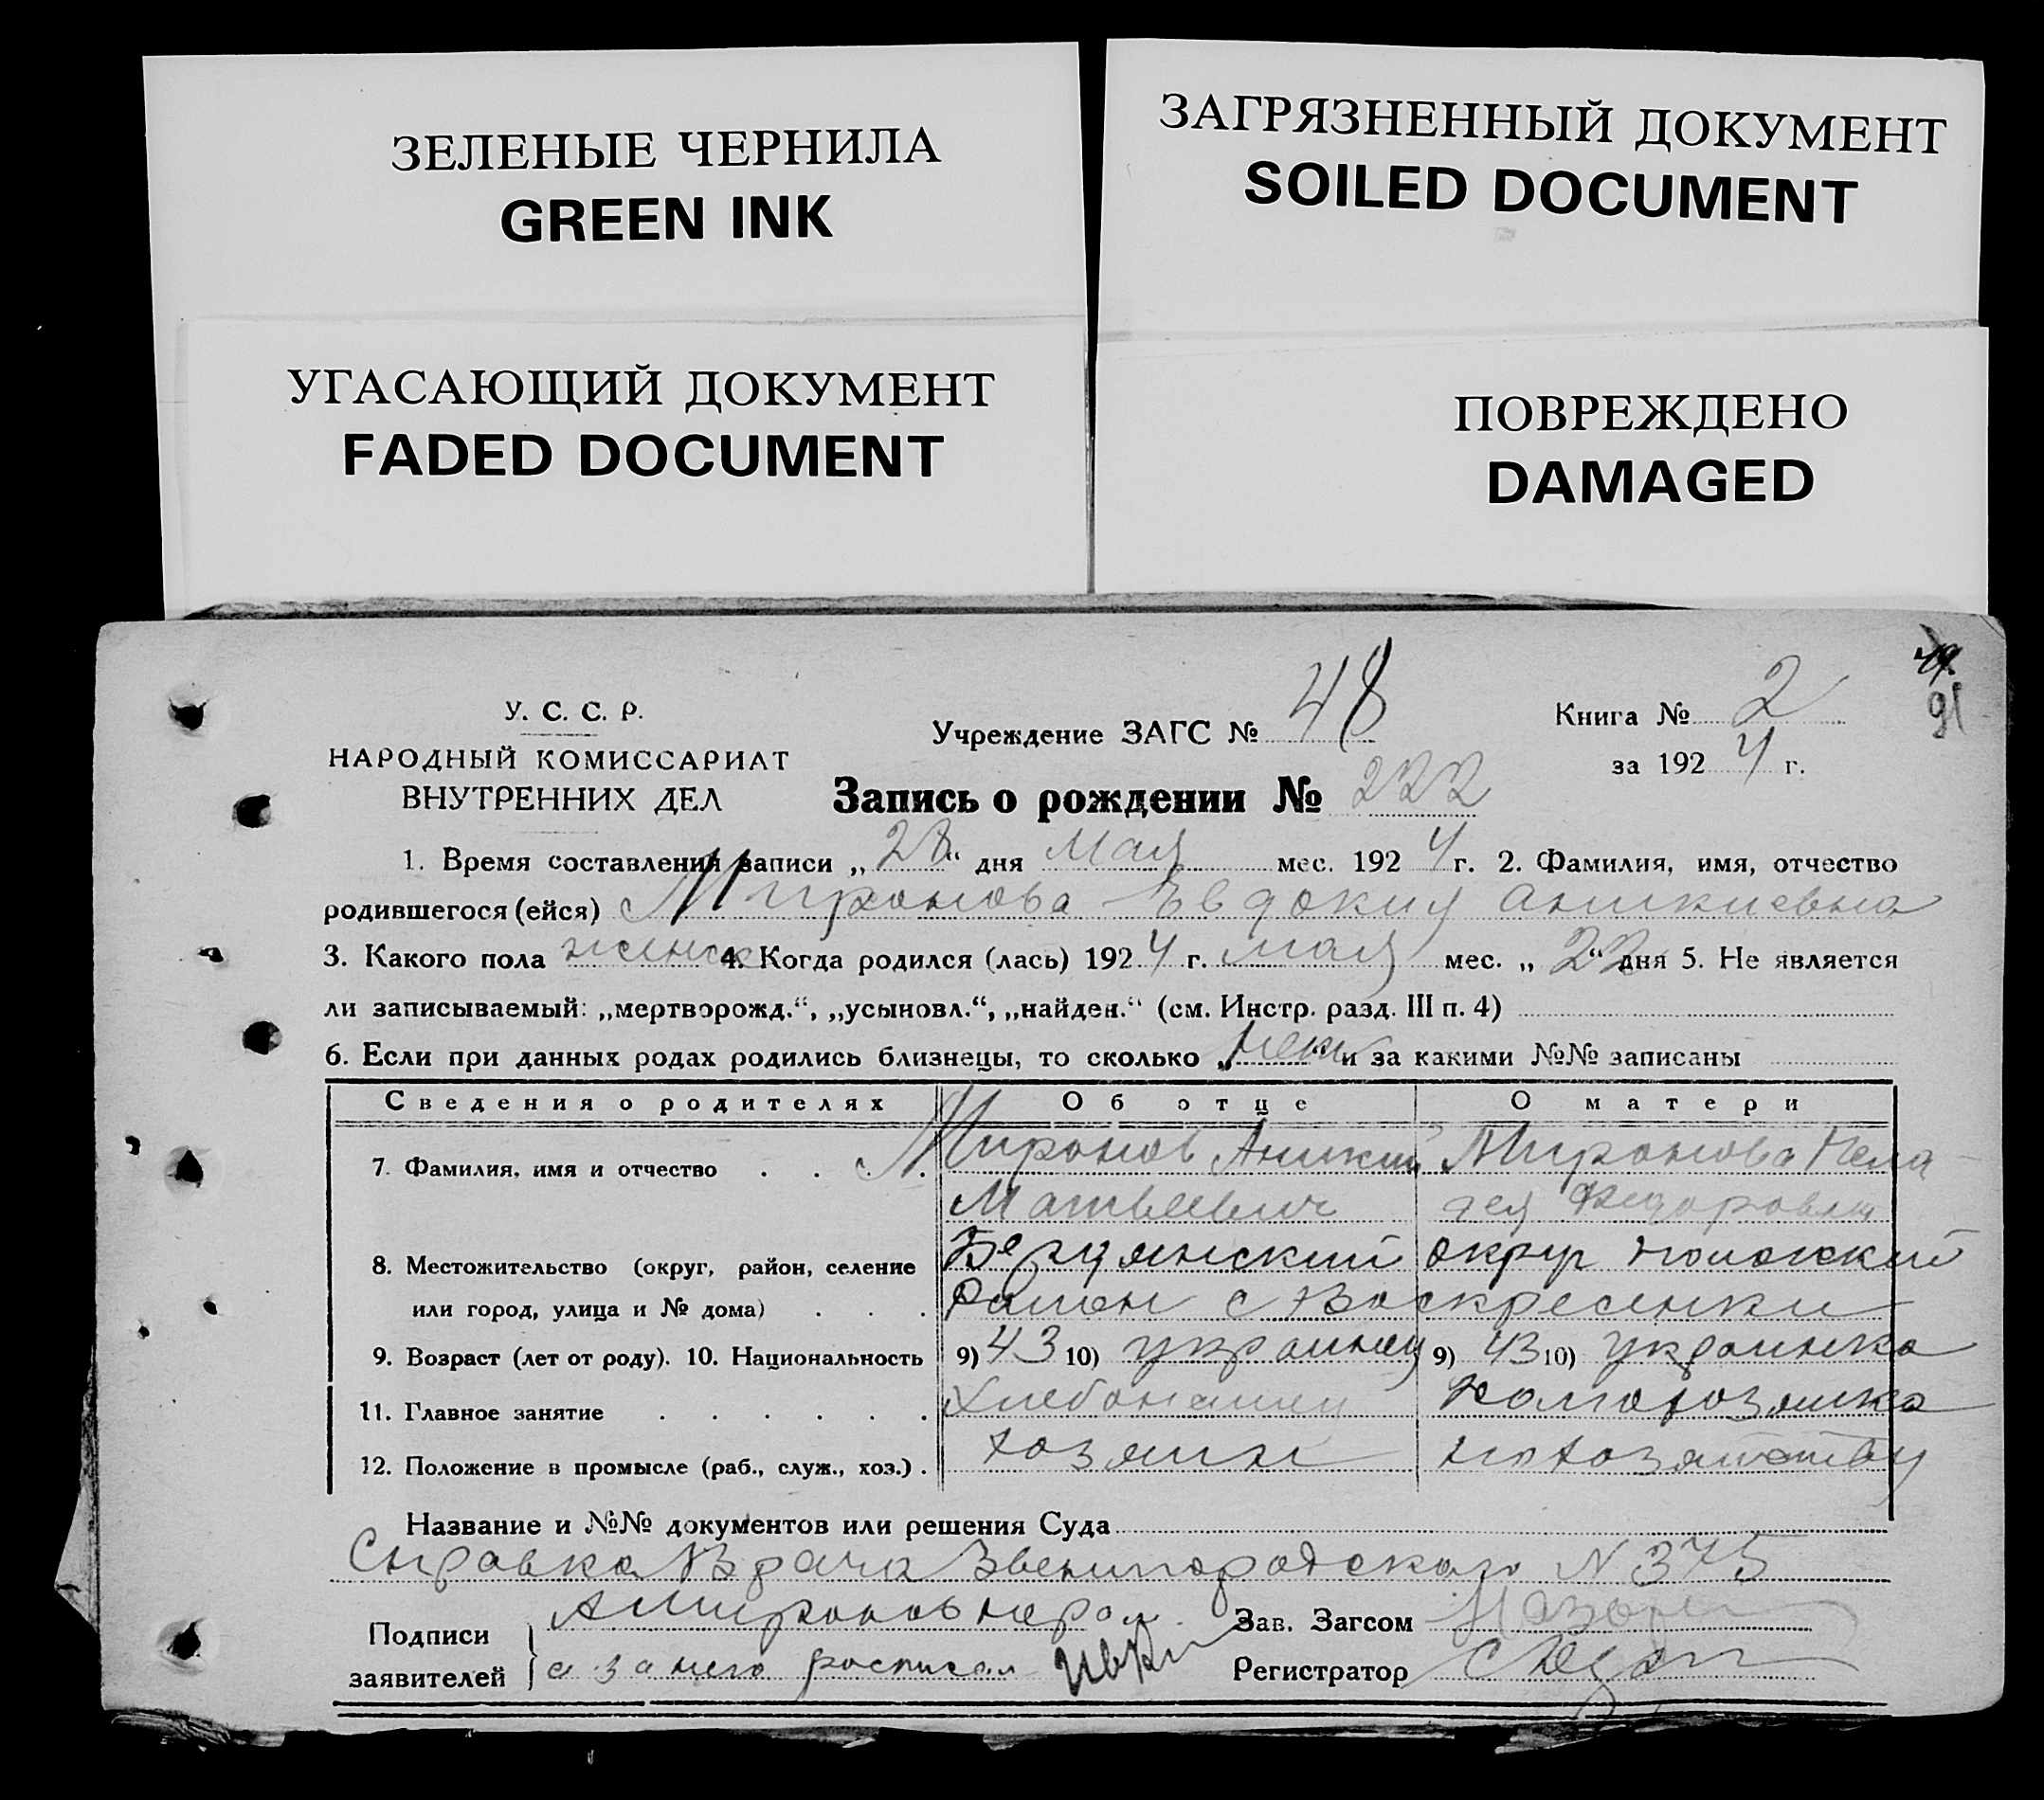 ЗЕЛЕНЫЕ ЧЕРНИЛА
GREEN INK
ЗАГРЯЗНЕННЫЙ ДОКУМЕНТ
SOILED DOCUMENT
УГАСАЮЩИЙ ДОКУМЕНТ
FADED DOCUMENT
ПОВРЕЖДЕНО
DAMAGED
91
У. С. С. Р.
НАРОДНЫЙ КОМИССАРИАТ
ВНУТРЕННИХ ДЕЛ
Учреждение ЗАГС № 48
Книга № 2
за 1924 г.
Запись о рождении № 222
1. Время составления записи „28“ дня Мая мес. 1924 г. 2. Фамилия, имя, отчество
родившегося (ейся) Миронова Евдокия Аникиевна
3. Какого пола женск 4. Когда родился (лась) 1924 г. мая мес. „22“ дня 5. Не является
ли записываемый: „мертворожд.“, „усыновл.“, „найден.“ (см. Инстр. разд. III п. 4)
6. Если при данных родах родились близнецы, то сколько „нет“ и за какими №№ записаны
Сведения о родителях Об отце О матери
7. Фамилия, имя и отчество Миронов Аникий Миронова Пела
Матвеевич гея Федоровна
8. Местожительство (округ, район, селение округ Пологский
или город, улица и № дома) Район с Воскресенки
9. Возраст (лет от роду). 10. Национальность 9) 43 10) украинец 9) 43 10) украинка
11. Главное занятие Хлебопашец
12. Положение в промысле (раб., служ., хоз.) хозяин по хозяйству
Название и №№ документов или решения Суда
Справка Врача Звенигородского N 375
Подписи
заявителей
А Миронов негром
а за него росписал
Зав. Загсом
Регистратор